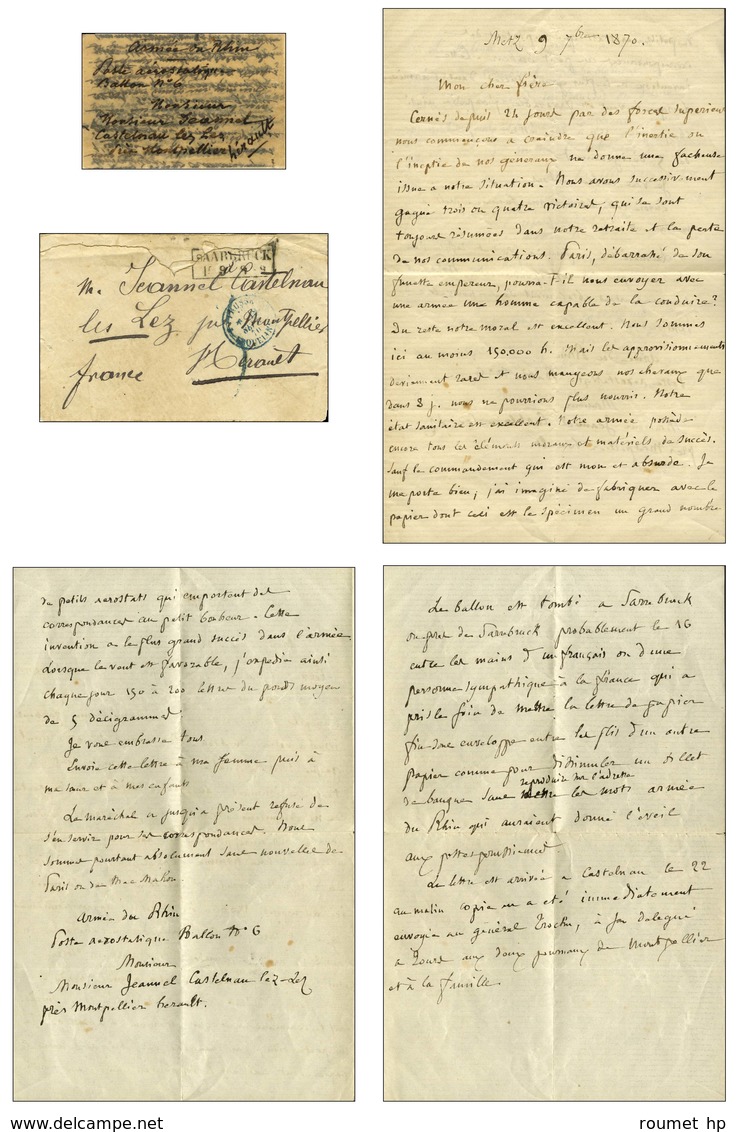 Armée du Rhin
Poste aérostatique
Ballon N° 6
Monsieur
Monsieur Jeannel
Castelnau lez Lez
près Montpellier
hérault
SAARBRÜCK
M. Jeannel Castelnau
les Lez près Montpellier
france Hérault
Metz 9 7bre 1870.
Mon cher frère
Cernés depuis 24 jours par des forces supérieures
nous commençons a craindre que l'inertie ou
l'ineptie de nos généraux ne donne une facheuse
issue a notre situation. Nous avons successivement
gagné trois ou quatre victoires, qui se sont
toujours résumées dans notre retraite et la perte
de nos communications. Paris, débarrassé de son
funeste empereur, pourra-t-il nous envoyer avec
une armée un homme capable de la conduire?
Du reste notre moral est excellent. Nous sommes
ici au moins 150,000 h. Mais les approvisionnements
deviennent rares et nous mangeons nos chevaux que
dans 8 j. nous ne pourrions plus nourrir. Notre
état sanitaire est excellent. Notre armée possède
encore tous les éléments moraux et matériels de succès.
Sauf le commandement qui est mou et absurde. Je
me porte bien, j'ai imaginé de fabriquer avec le
papier dont ceci est le spécimen un grand nombre
de petits aerostats qui emportent des
correspondances au petit bonheur. Cette
invention a le plus grand succès dans l'armée
Lorsque le vent est favorable, j'expédie ainsi
chaque jour 150 à 200 lettres du poids moyen
de 5 décigrammes.
Je vous embrasse tous.
Envoie cette lettre à ma femme puis à
ma sœur et à mes enfants
Le maréchal a jusqu'à présent refusé de
s'en servir pour ses correspondances. Nous
sommes pourtant absolument sans nouvelles de
Paris ou de Mac Mahon.
Armée du Rhin
Poste aérostatique Ballon N° 6
Monsieur
Monsieur Jeannel Castelnau lez-Lez
près Montpellier herault.
Le ballon est tombé a Sarrebruck
ou près de Sarrebruck probablement le 16
entre les mains d'un français ou d'une
personne sympathique à la france qui a
pris le soin de mettre la lettre de papier
fin dans enveloppe entre les plis d'un autre
papier comme pour dissimuler un billet
de banque sans reproduire sur l'adresse les mots armée
du Rhin qui auraient donné l'éveil
aux postes prussiennes
La lettre est arrivée a Castelnau le 22
au matin copie en a été immédiatement
envoyée au général Trochu, à son délégué
a Tours aux deux journaux de Montpellier
et à la famille.
www.delcampe.net
roumet hp